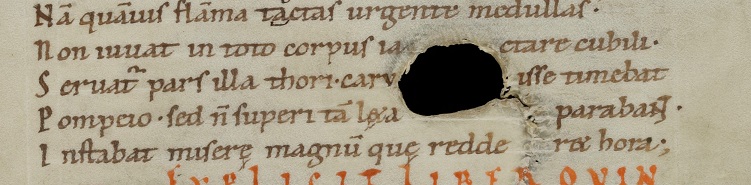 Nā quāuis flāma tactas urgente medullas·
Non iuuat in toto corpus ia ctare cubili·
Seruat pars illa thori· caru isse timebat
Pompeio· sed n̄ superi tā l ta parabant·
Instabat miserę magnū que redde ret hora·;
EXPLICIT LIBER QVIN